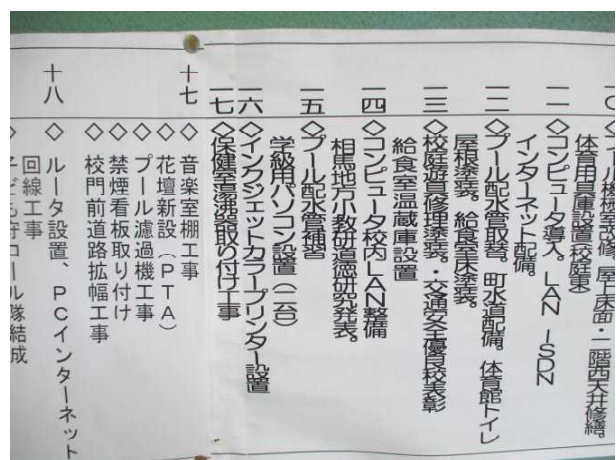 一〇
プール機械室改修。屋上東面・二階西天井修繕。
体育用具庫設置(校庭東)
一一
◇コンピュータ導入。LAN ISDN
インターネット配備。
一二
◇プール配水管取替。町水道配備。体育館トイレ
屋根塗装。給食室床塗装。
一三
◇校庭遊具修理塗装。・交通安全優良校表彰
給食室温蔵庫設置
一四
◇コンピュータ校内LAN整備
相馬地方小教研道徳研究発表。
一五
◇プール配水管補習
学級用パソコン設置(二台)
一六
◇インクジェットカラープリンター設置
一七
◇保健室湯沸器取り付け工事
十七
◇音楽室棚工事
◇花壇新設(PTA)
◇プール濾過機工事
◇禁煙看板取り付け
◇校門前道路拡幅工事
十八
◇ルータ設置、PCインターネット
回線工事
◇子ども守ロール隊結成